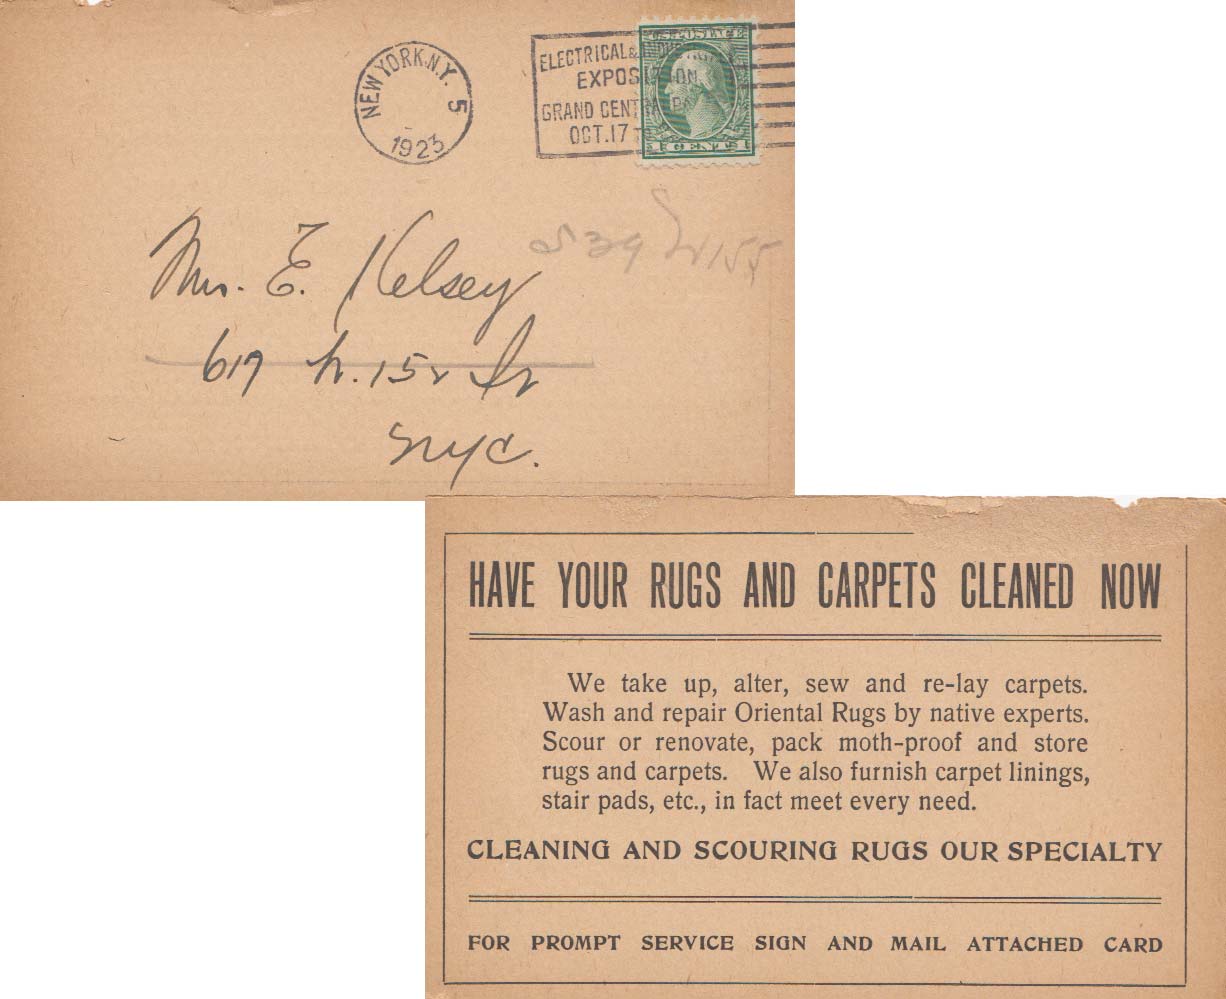 NEW YORK N.Y. 5
1923
ELECTRICAL &
EXPOSITION
GRAND CENTRAL
OCT. 17
U.S. POSTAGE
1 CENT 1
539 W 155
Mrs. E. Kelsey
617 W. 152 St
NYC.
HAVE YOUR RUGS AND CARPETS CLEANED NOW
We take up, alter, sew and re-lay carpets.
Wash and repair Oriental Rugs by native experts.
Scour or renovate, pack moth-proof and store
rugs and carpets. We also furnish carpet linings,
stair pads, etc., in fact meet every need.
CLEANING AND SCOURING RUGS OUR SPECIALTY
FOR PROMPT SERVICE SIGN AND MAIL ATTACHED CARD